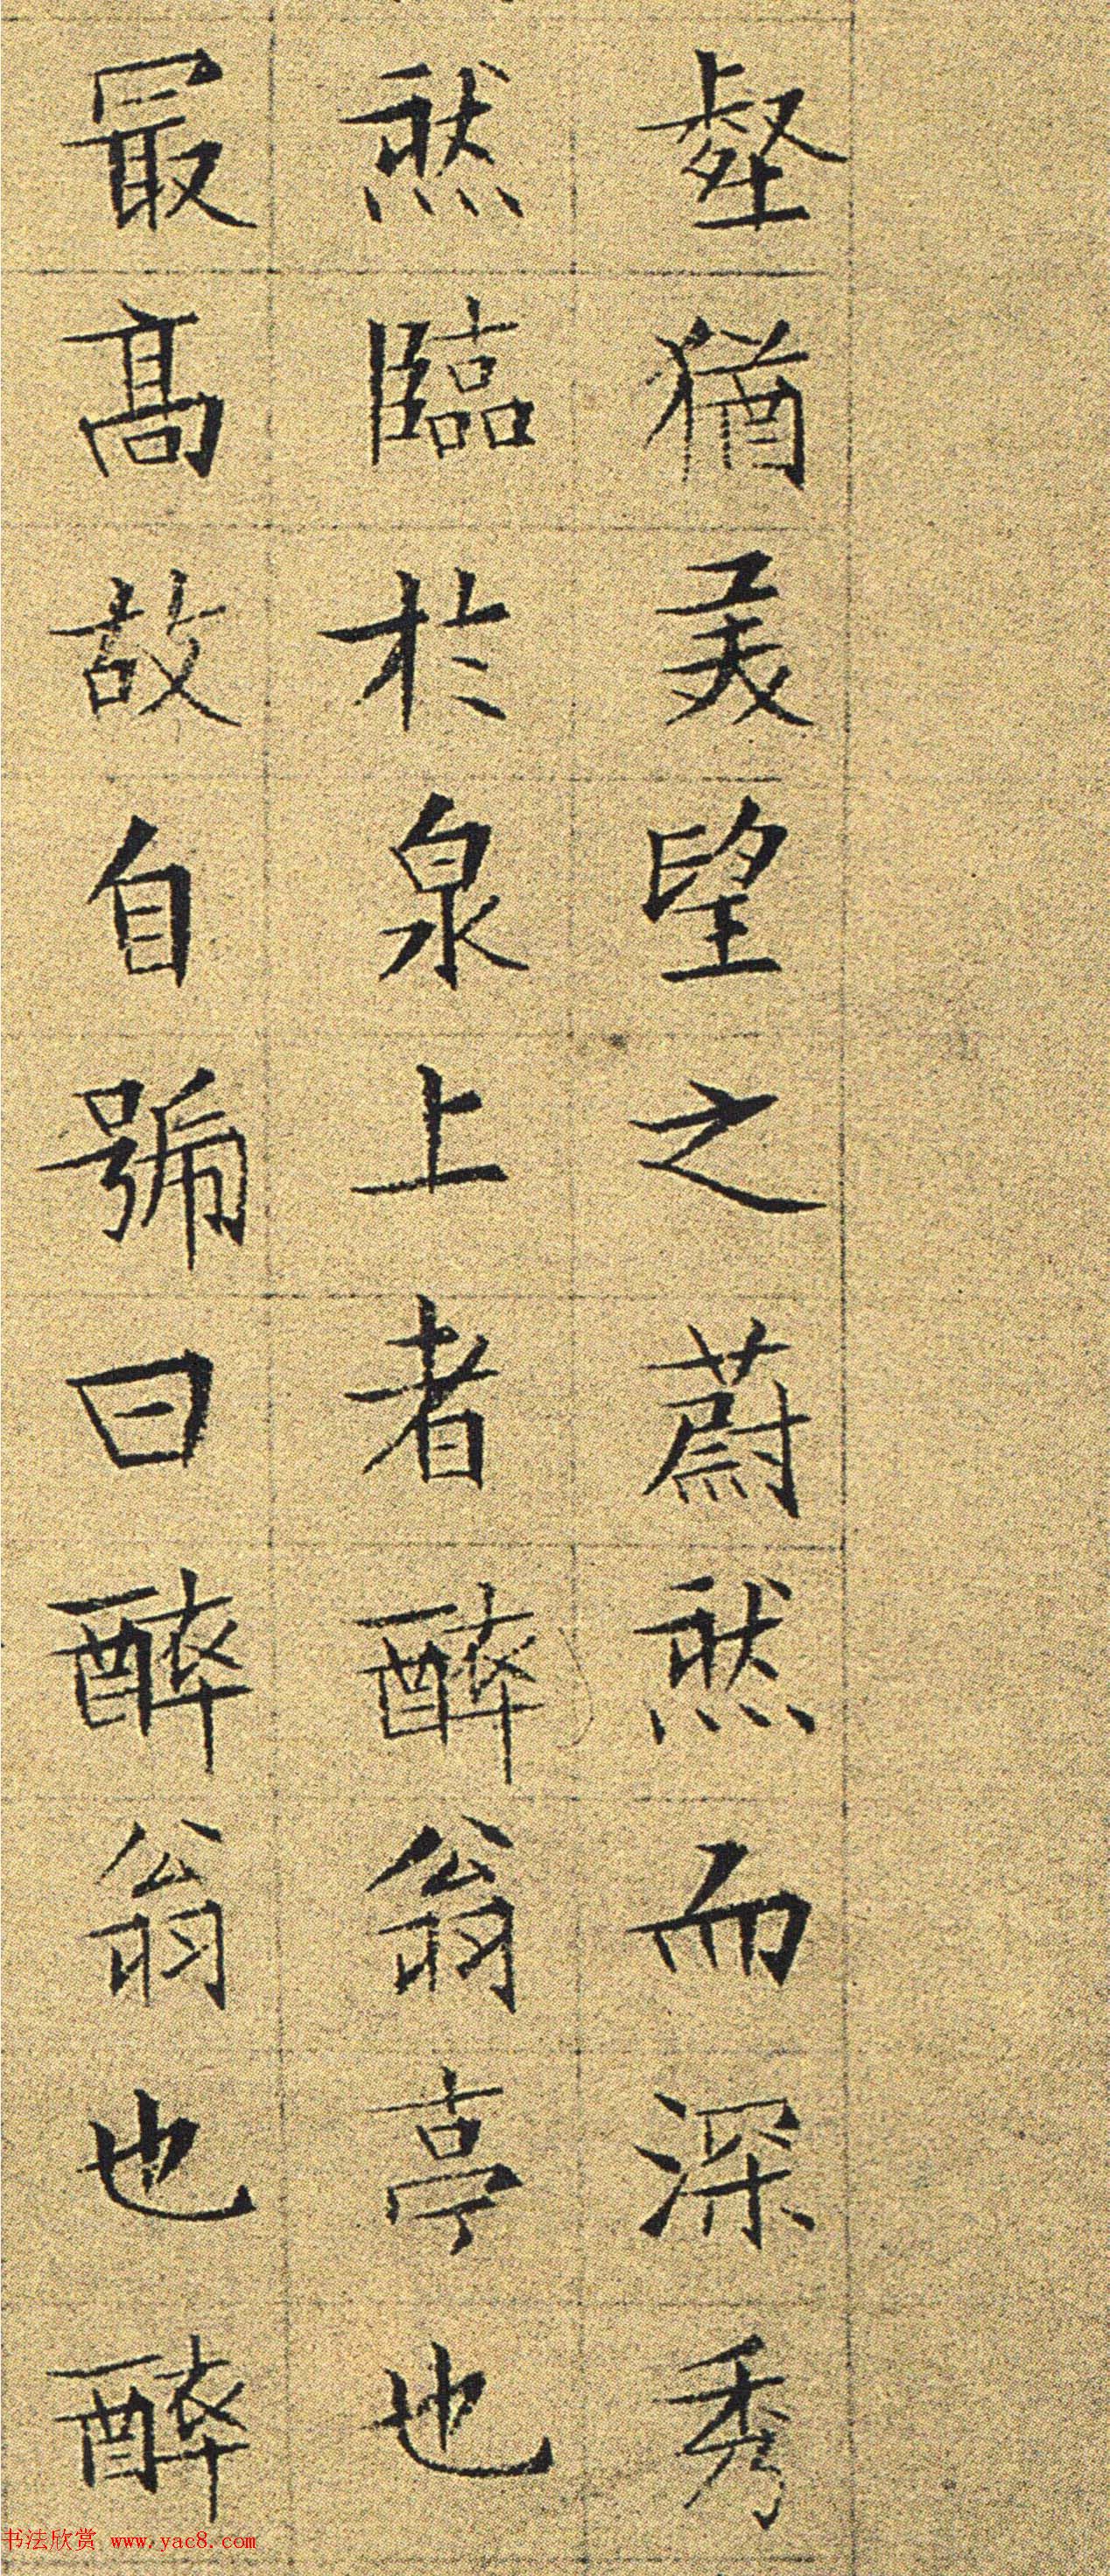 壑猶美望之蔚然而深秀
然臨於泉上者醉翁亭也
最高故自號曰醉翁也醉
书法欣赏 www.yac8.com